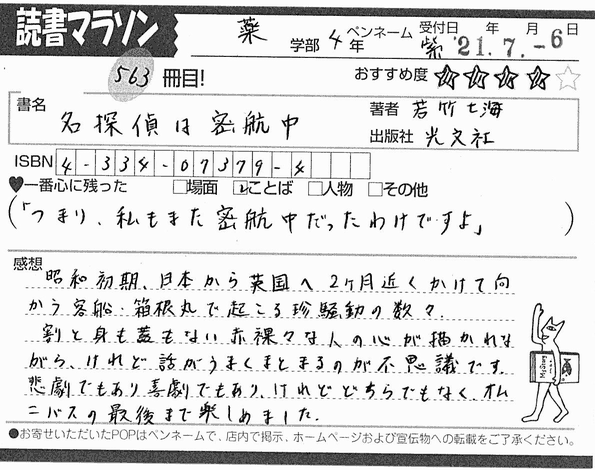 読書マラソン
薬 学部 4年 ペンネーム 紫 受付日 年 月 日 '21.7.-6
563冊目! おすすめ度 ★★★★☆
書名 名探偵は密航中
著者 若竹七海
出版社 光文社
ISBN 4-334-07379-4
♥一番心に残った □場面 ☑ことば □人物 □その他
(「つまり、私もまた密航中だったわけですよ」)
感想
昭和初期、日本から英国へ2ヶ月近くかけて向
かう客船・箱根丸で起こる珍騒動の数々。
割と身も蓋もない赤裸々な人の心が描かれな
がら、けれど話がうまくまとまるのが不思議です。
悲劇でもあり喜劇でもあり、けれどどちらでもなく、オム
ニバスの最後まで楽しめました。
●お寄せいただいたPOPはペンネームで、店内で掲示、ホームページおよび宣伝物への転載をご了承ください。